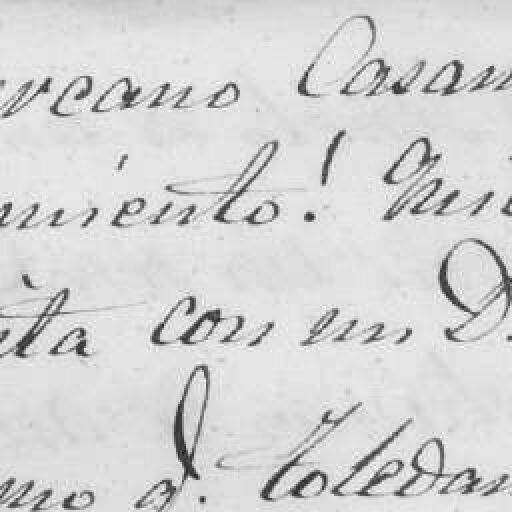 ercano Casam
miento! Quis
ita con un D.
mo d. Toledan